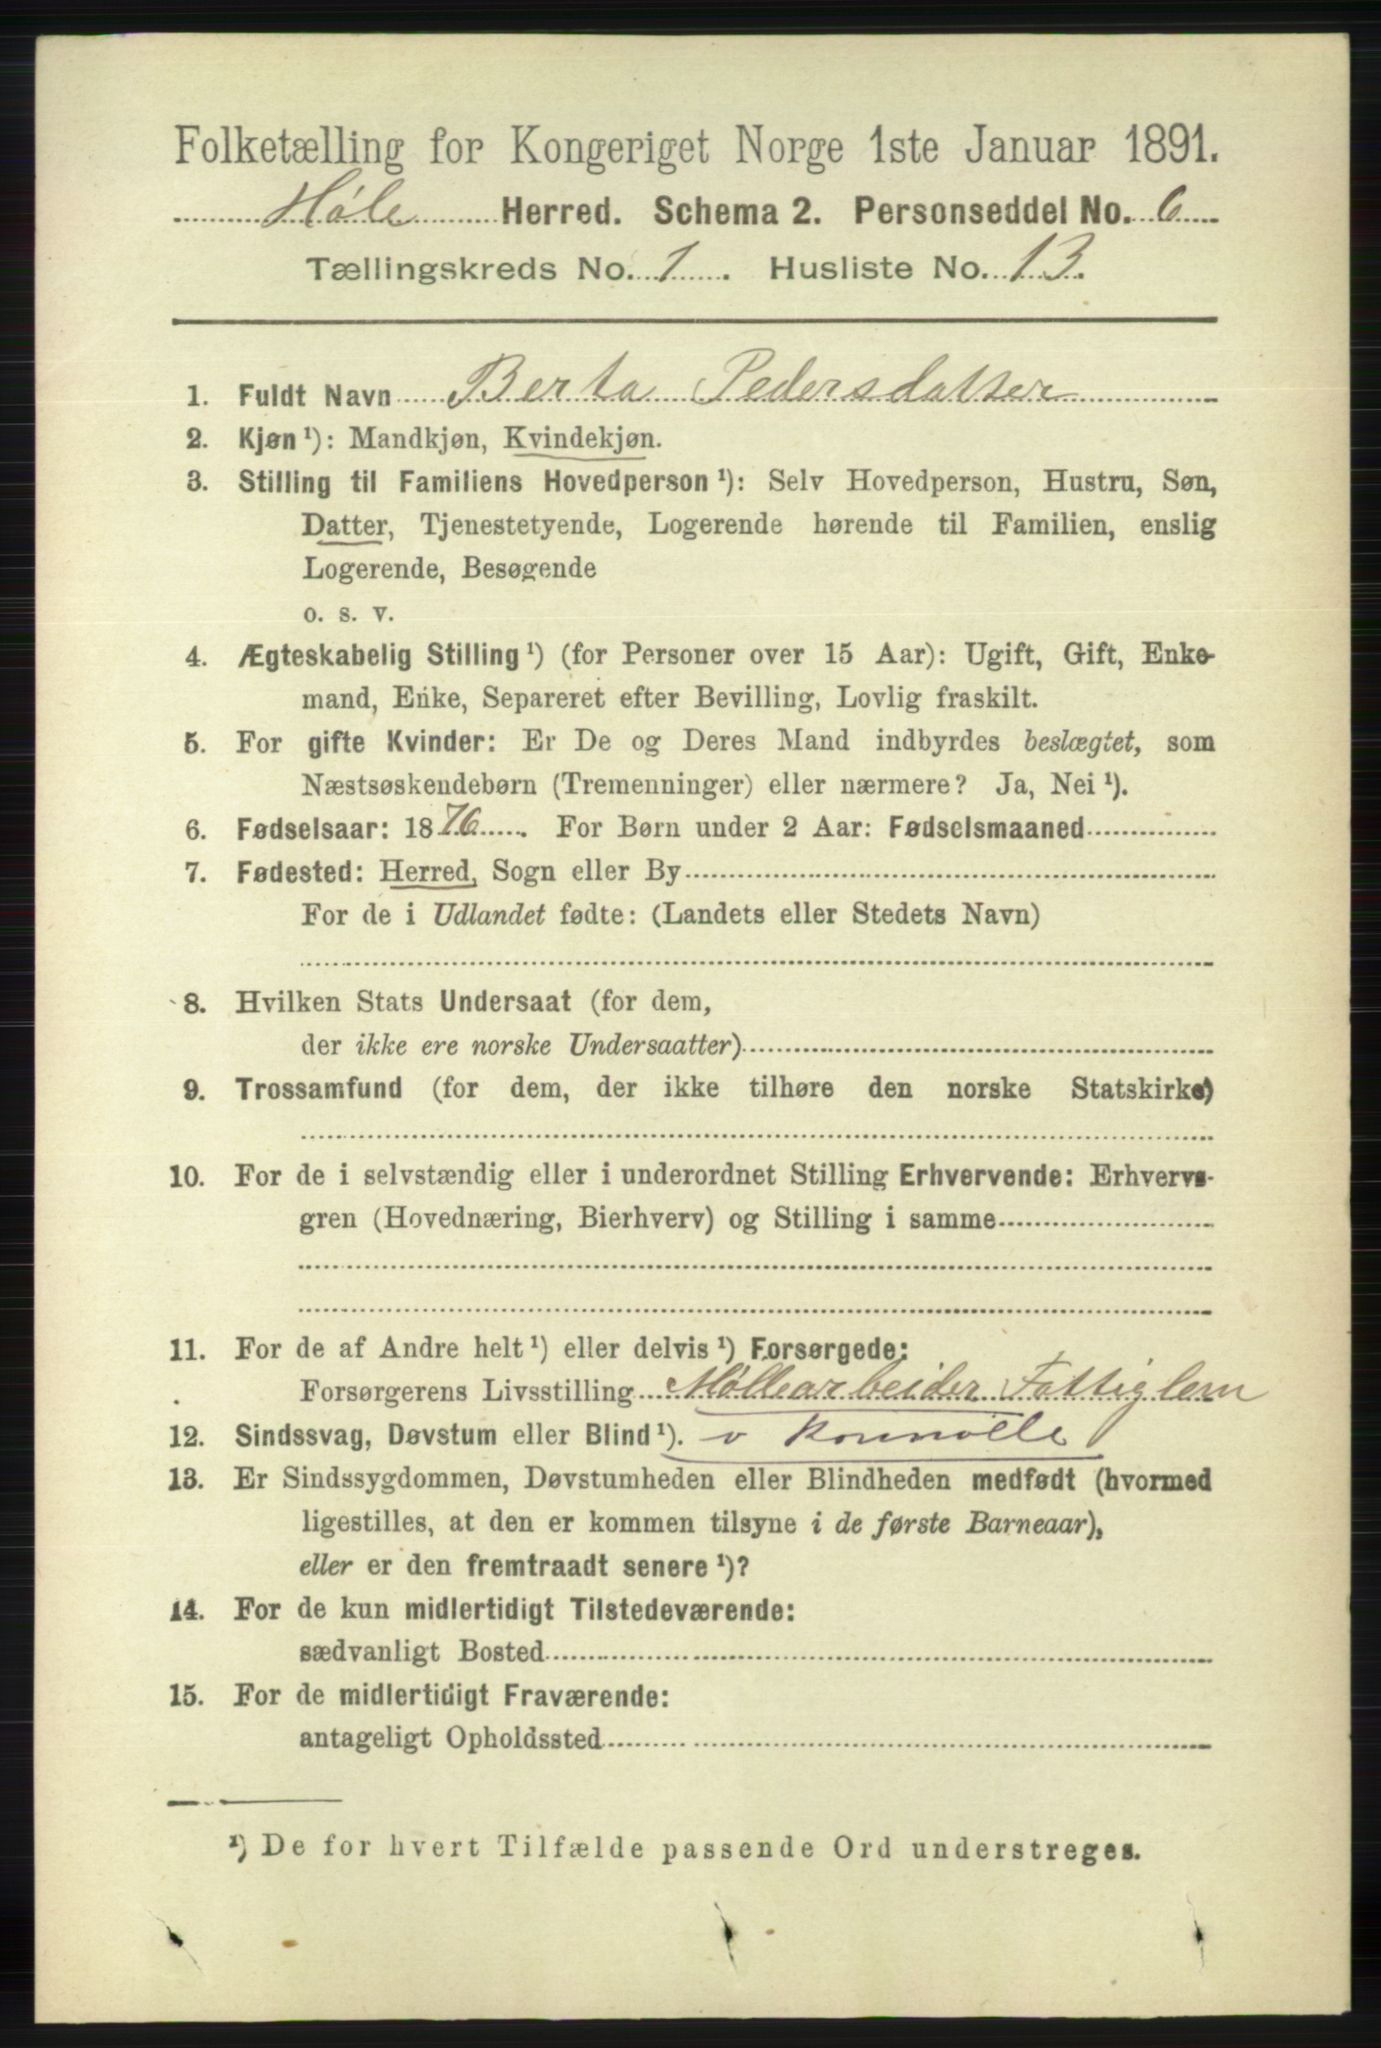 Folketælling for Kongeriget Norge 1ste Januar 1891.
Høle Herred. Schema 2. Personseddel No. 6
Tællingskreds No. 1. Husliste No. 13.
1. Fuldt Navn Berta Pedersdatter
2. Kjøn ¹): Mandkjøn, Kvindekjøn.
3. Stilling til Familiens Hovedperson ¹): Selv Hovedperson, Hustru, Søn,
Datter, Tjenestetyende, Logerende hørende til Familien, enslig
Logerende, Besøgende
o. s. v.
4. Ægteskabelig Stilling ¹) (for Personer over 15 Aar): Ugift, Gift, Enke-
mand, Enke, Separeret efter Bevilling, Lovlig fraskilt.
5. For gifte Kvinder: Er De og Deres Mand indbyrdes beslægtet, som
Næstsøskendebørn (Tremenninger) eller nærmere? Ja, Nei ¹).
6. Fødselsaar: 1876. For Børn under 2 Aar: Fødselsmaaned
7. Fødested: Herred, Sogn eller By
For de i Udlandet fødte: (Landets eller Stedets Navn)
8. Hvilken Stats Undersaat (for dem,
der ikke ere norske Undersaatter)
9. Trossamfund (for dem, der ikke tilhøre den norske Statskirke)
10. For de i selvstændig eller i underordnet Stilling Erhvervende: Erhvervs-
gren (Hovednæring, Bierhverv) og Stilling i samme
11. For de af Andre helt ¹) eller delvis ¹) Forsørgede:
Forsørgerens Livsstilling Møllearbeider Fattiglem
12. Sindssvag, Døvstum eller Blind ¹).
13. Er Sindssygdommen, Døvstumheden eller Blindheden medfødt (hvormed
ligestilles, at den er kommen tilsyne i de første Barneaar),
eller er den fremtraadt senere ¹)?
14. For de kun midlertidigt Tilstedeværende:
sædvanligt Bosted
15. For de midlertidigt Fraværende:
antageligt Opholdssted
¹) De for hvert Tilfælde passende Ord understreges.